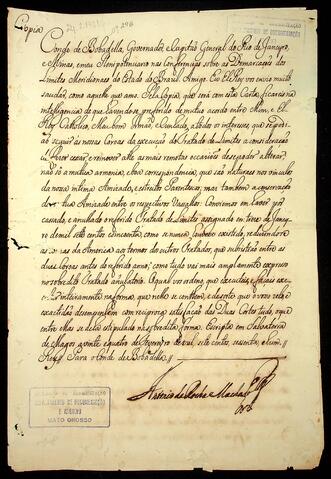 Copia
Conde de Bobadella, Governador, e Capitão General do Rio de Janeyro,
e Minas, e meu Plenipotenciario nas Conferencias sobre as Demarcaçoes dos
Limites Meridionaes do Estado do Brazil Amigo. Eu El Rey vos envio muito
saudar, como aquelle que amo. Pela Copia, que será com esta Carta, ficareis na
intelligencia de que havendose preferido de mutuo acordo entre Mim, e El
Rey Catholico, Meu bom Irmão, e Cunhado, a todos os interesses, que se podião
seguir ás nossas Coroas da execução do Tratado de Limites a consideração
de fazer cessar, e remover até as mais remotas occazioens de se poder alterar,
não só a mutua armonia, e boa correspondencia, que são naturaes nos vinculos
da nossa intima Amizade, e estreito Parentesco, mas tambem a conservação
de tal Amizade entre os respectivos Vassallos: Convimos em haver por
cassado, e anullado o referido Tratado de Limites assignado em treze de Janey-
ro de mil sete centos e sincoenta, como se nunca houvesse existido, reduzindo-se
as couzas da America aos termos dos outros Tratados, que subsistião entre as
duas Coroas antes do referido anno; como tudo vai mais amplamente expresso
no sobredito Tratado anulatorio. O qual vos ordeno que executeis, e façais exe-
cutar inteiramente na forma, que nelle se contêm, e de sorte que o vosso zelo
e exactidão dezempenhem com reciproca satisfação das Duas Cortes tudo, o que
entre Mim se acha estipulado na sobredita forma. Escripta em Salvaterra
de Magos a vinte e quatro de Fevereiro de mil, sete centos, sesenta, e hum //
Rey // Para o Conde de Bobadella //
Antonio da Rocha Machado
DEPARTAMENTO DE DOCUMENTAÇÃO
E ARQUIVO
MATO GROSSO